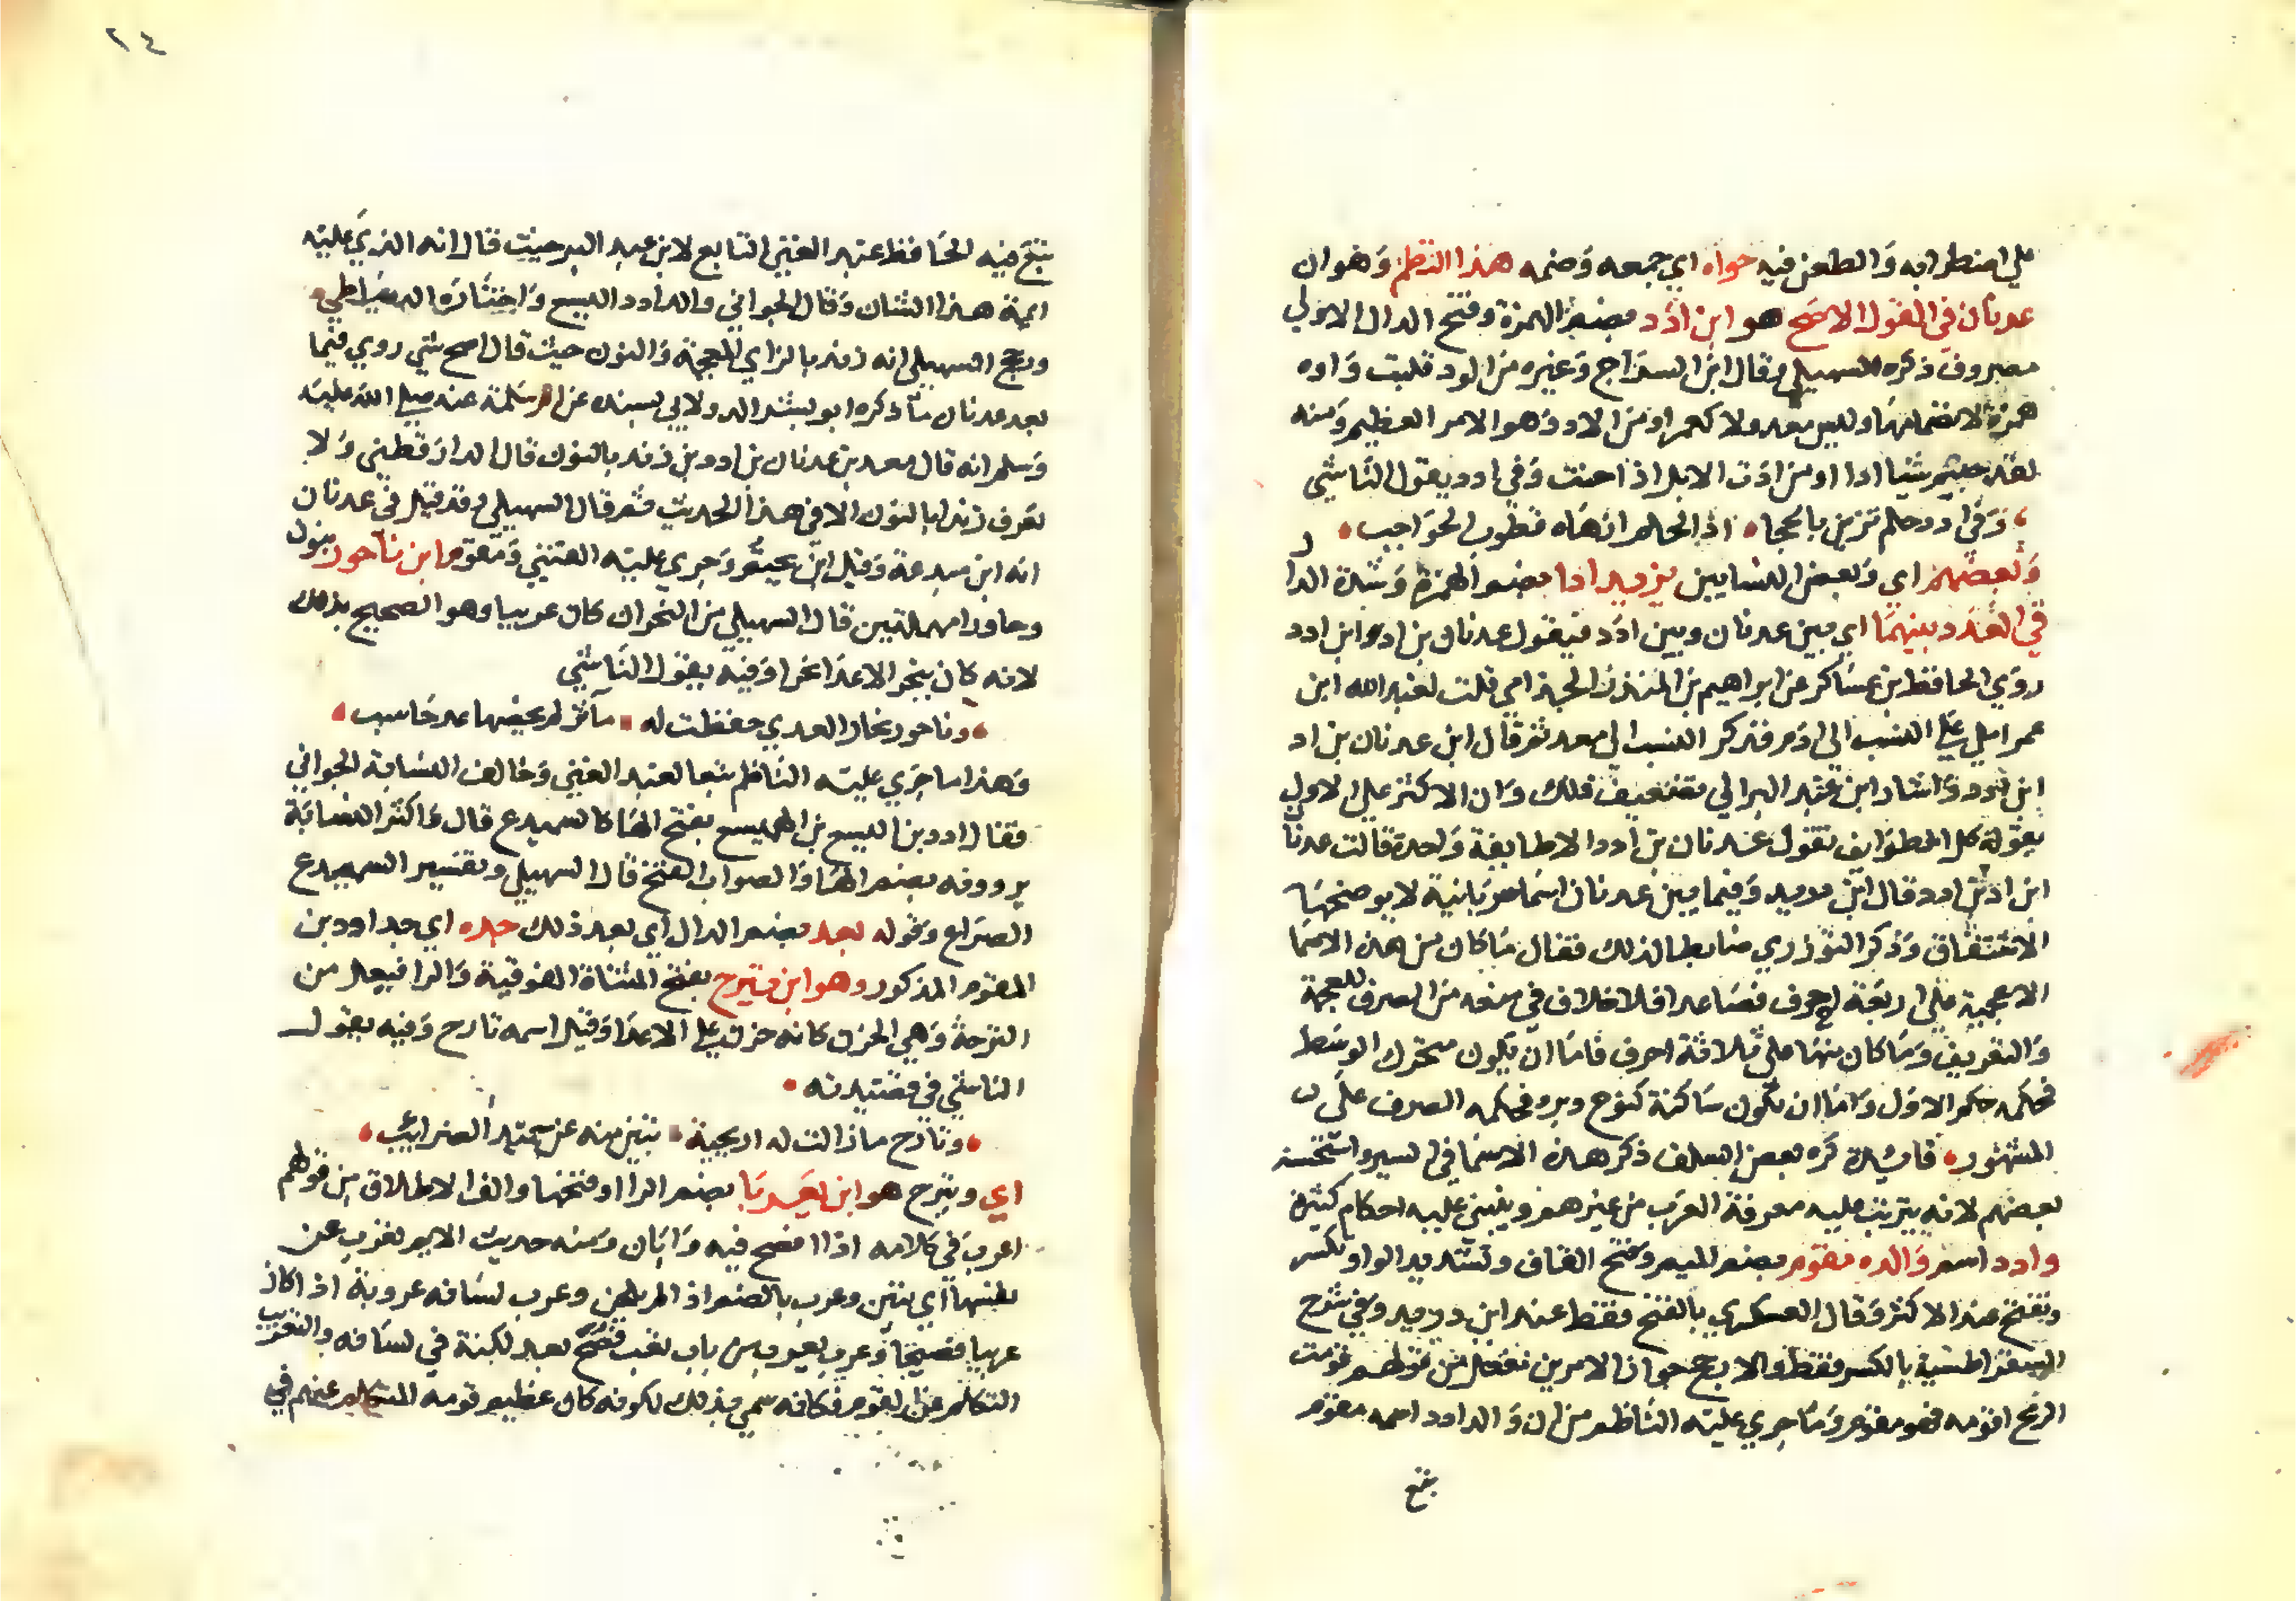 علي اضطرابه والطعن فيه حواه اي جمعه وضمه هذا النظم وهو ان
عدنان في القول الاصح هو ابن ادد بضم الهمزة وفتح الدال الاولي
مصروف ذكره السهيلي وقال ابن السراج وغيره من الود قلبت واوه
همزة لانضمامها وليس معدولا كعمر او من الاد وهو الامر العظيم ومنه
لقد جيتم شيئا ادا او من ادت الابل اذا حنت وفي ادد يقول الناشي
وفي ادد حلم تزين بالحجا اذا الحلم ازهاه قطوب الحواجب
وبعضهم اي وبعض النسابين يزيد ادا بضم الهمزة وشدة الدال
في العدد بينهما اي بين عدنان وبين ادد فيقول عدنان بن اد ابن ادد
روي الحافظ بن عساكر عن ابراهيم بن المنذر الحزامي قلت لعبد الله ابن
عمر املي علي النسب الي ادم فذكر النسب الي معد ثم قال ابن عدنان بن اد
ابن ادد واشار ابن عبد البر الي تضعيف ذلك وان الاكثر علي الاولي
بقوله كل الطوايف تقول عدنان بن ادد الا طايفة واحدة قالت عدنان
ابن اد بن ادد قال ابن دريد وفيما بين عدنان اسما سريانية لا يوضحها
الاشتقاق وذكر التوزري ضابطا لذلك فقال ما كان من هذه الاسما
الاعجمية علي اربعة احرف فصاعدا فلا خلاف في منعه من الصرف للعجمة
والتعريف وما كان منها علي ثلاثة احرف فاما ان يكون متحرك الوسط
فحكمه حكم الاول واما ان يكون ساكنه كنوح فحكمه الصرف علي
المشهور فايدة كره بعض السلف ذكر هذه الاسما في السير واستحسنه
بعضهم لانه يترتب عليه معرفة العرب من غيرهم وينبني عليه احكام كثيرة
وادد اسم والده مقوم بضم الميم وفتح القاف وتشديد الواو تكسر
وتفتح عند الاكثر وقال العسكري بالفتح فقط عند ابن دريد وفي شرح
الشقراطسية بالكسر فقط والارجح جواز الامرين مفعل من قولهم قومت
الرمح اقومه فهو مقوم وما جري عليه الناظم من ان والد ادد اسمه مقوم
تبع
٢٤
تبع فيه الحافظ عبد الغني التابع لابن عبد البر حيث قال انه الذي عليه
ايمة هذا الشان وقال الجواني والد ادد اليسع واختاره الدمياطي
ورجح السهيلي انه زند بالزاي المعجمة والنون حيث قال اصح شي روي فيما
بعد عدنان ما ذكره ابو بشر الدولابي بسنده عن ام سلمة عنه صلي الله عليه
وسلم انه قال معد بن عدنان بن ادد بن زند بالنون قال الدارقطني ولا
نعرف زندا بالنون الا في هذا الحديث ثم قال السهيلي وقد قيل في عدنان
انه ابن ميدعة وقيل ابن يحثم وجري عليه القتبي ومقوم ابن ناحور بنون
وحا ورا مهملتين قال السهيلي من النحر ان كان عربيا وهو الصحيح بذلك
لانه كان ينحر الاعدا نحرا وفيه يقول الناشي
وناحور نحار العدي حفظت له مآثر لم يحصها عد حاسب
وهذا ما جري عليه الناظم تبعا لعبد الغني وخالف النسابة الجواني
فقال ادد بن اليسع بن الهميسع بفتح الها كالسميدع قال واكثر النسابة
يروونه بضم الها والصواب الفتح قال السهيلي وتفسير السميدع
الصراع وقوله بعد بضم الدال اي بعد ذلك جده اي جد ادد بن
المقوم المذكور وهو ابن تيرح بفتح المثناة الفوقية والرا فيعل من
الترحة وهي الحزن كانه حزن علي الاعدا وقيل اسمه تارح وفيه يقول
الناشي في قصيدته
وتارح ما زالت له اريحية تبين منه عن حميد الضرايب
اي وتيرح هو ابن يعربا بضم الرا او فتحها والف الاطلاق من قولهم
اعرب في كلامه اذا افصح فيه وابان ومنه حديث الايم تعرب عن
نفسها اي تبين وعرب بالضم اذا لم يلحن وعرب لسانه عروبة اذا كان
عربيا فصيحا وعرب يعرب من باب تعب فصح بعد لكنة في لسانه والتعريب
التكلم عن القوم فكانه سمي بذلك لكونه كان عظيم قومه المتكلم عنهم في